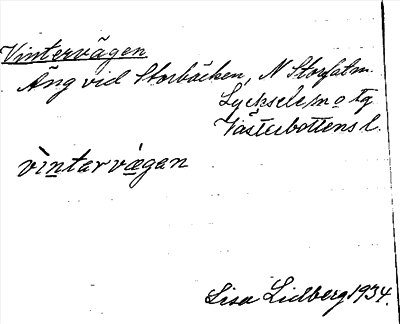 Vintervägen
Äng vid Storbäcken, N Storfalm.
Lycksele sn o tg
Västerbottens l.
vìntarvä̀gan
Lisa Lidberg 1934.